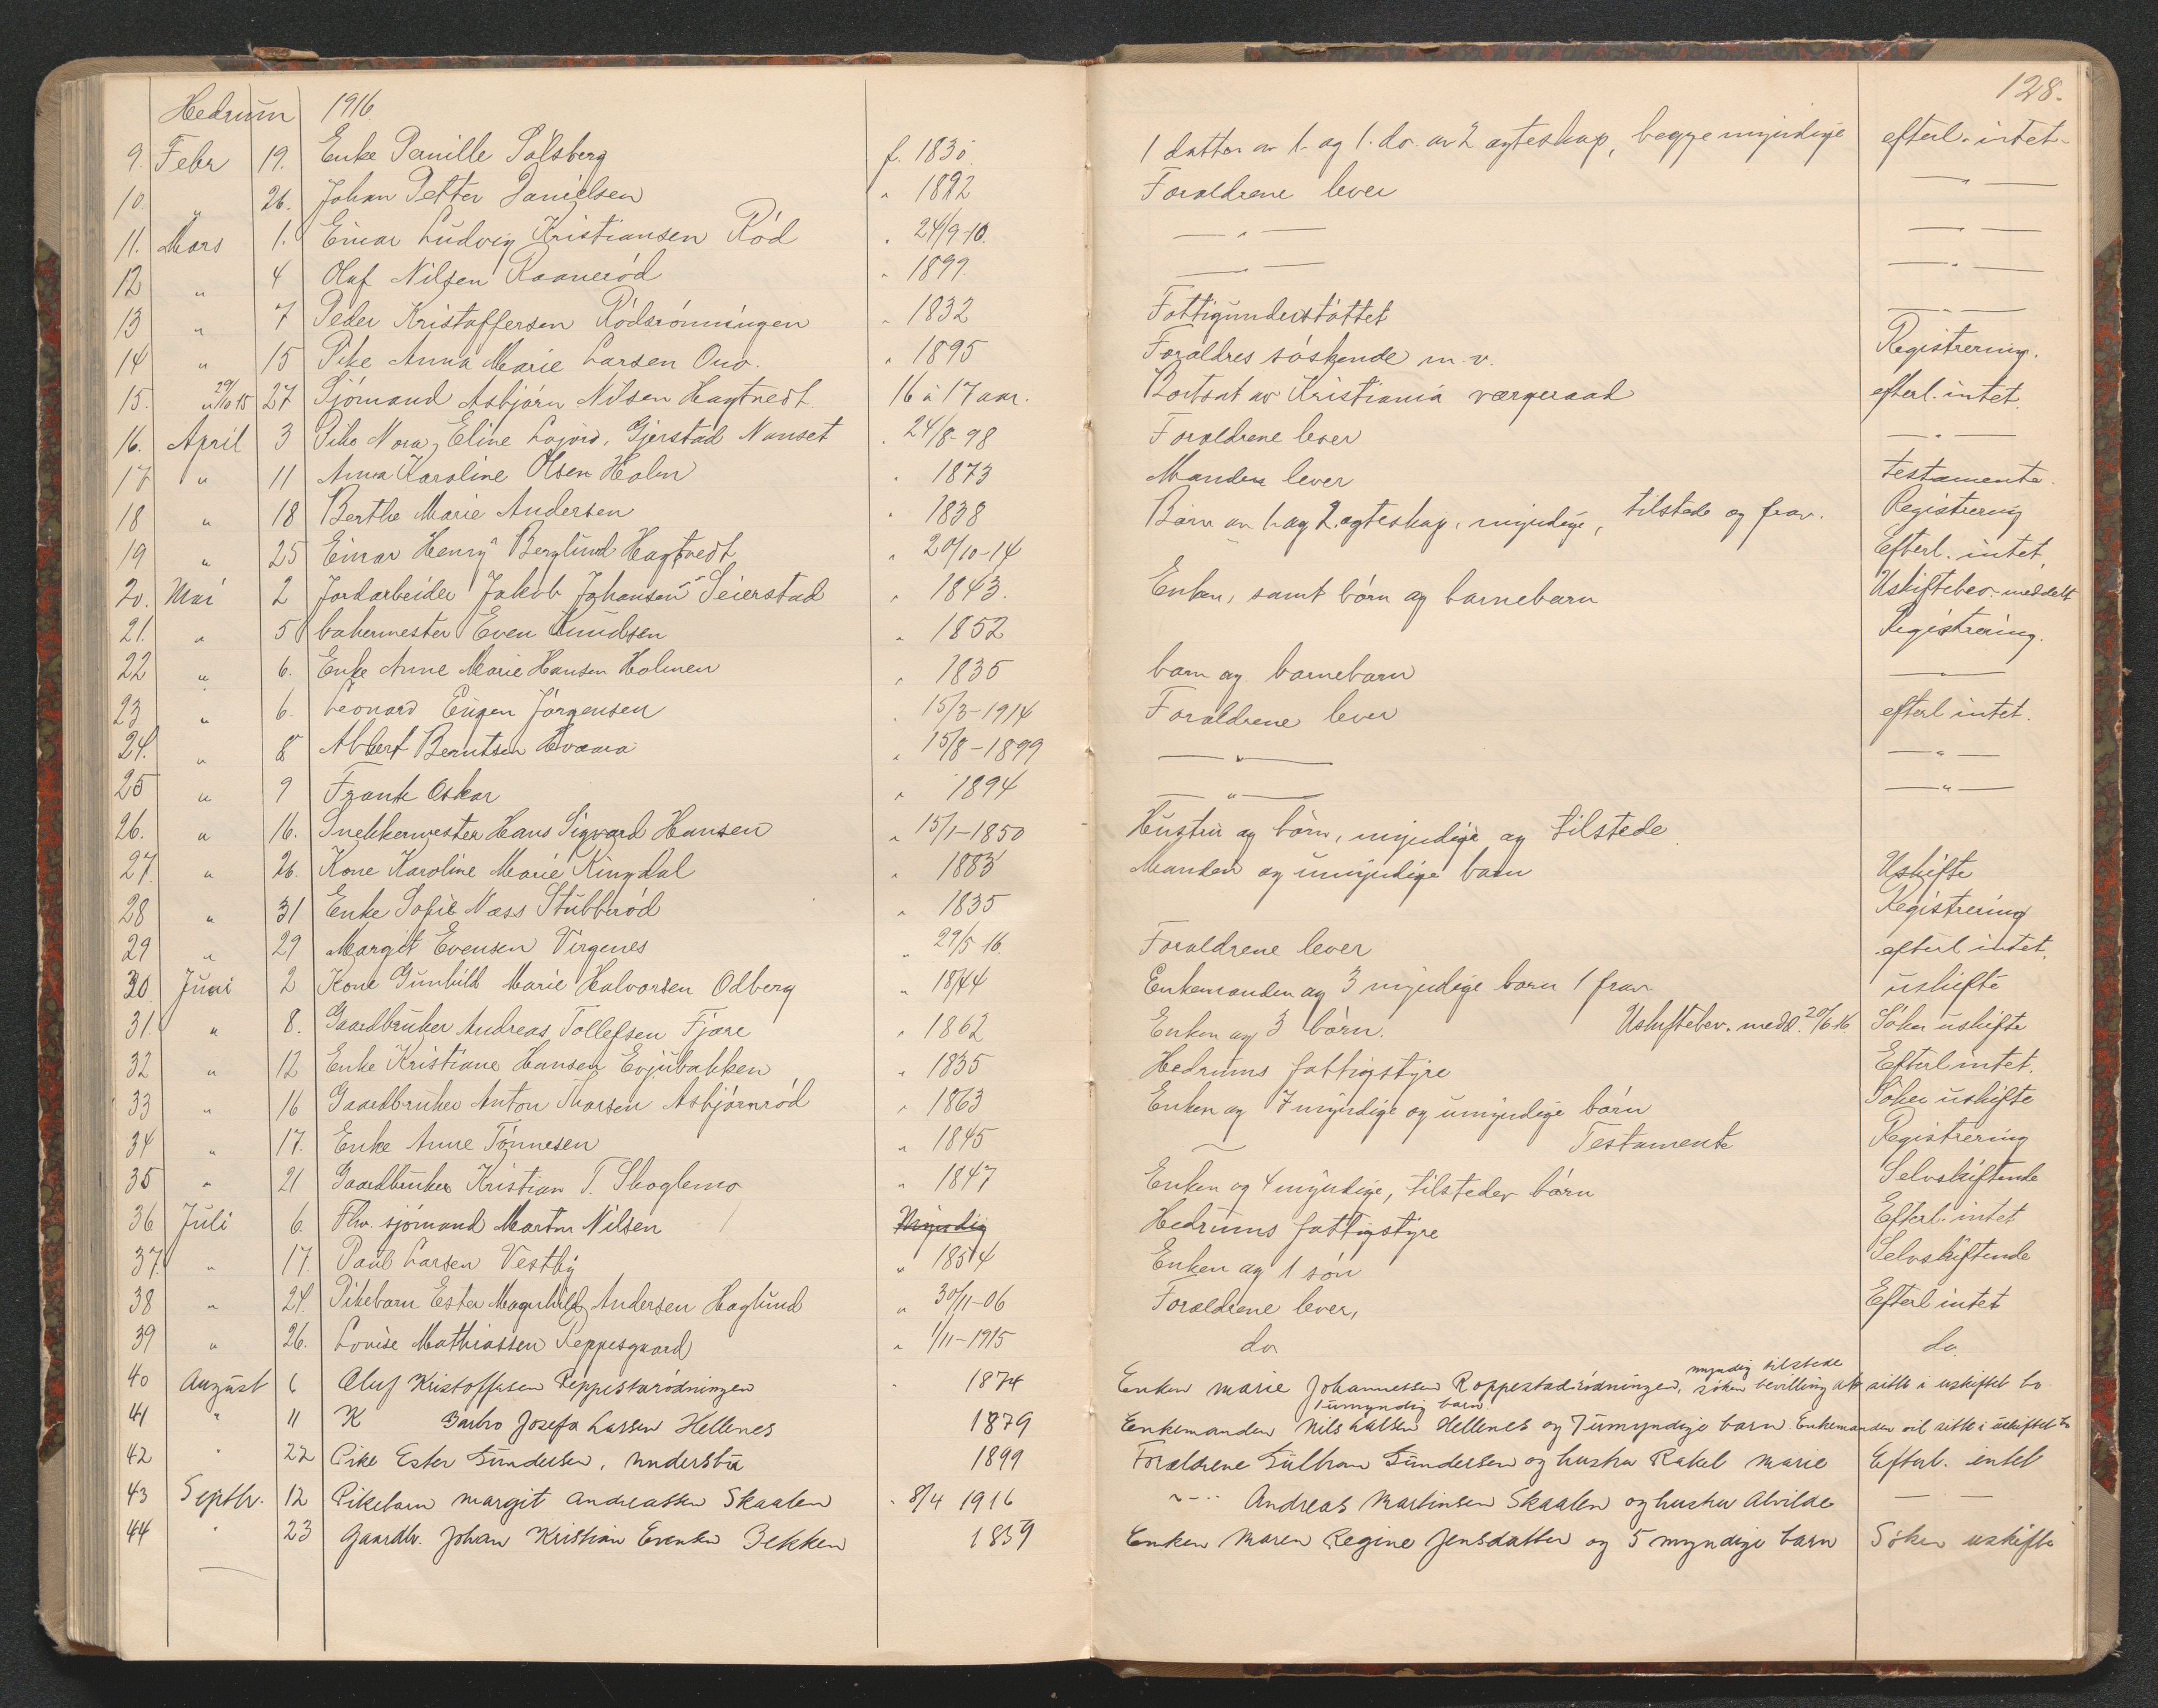 128.
Hedrum 1916.
9. Febr 19. Enke Pernille Sølsberg f. 1830. 1 datter av 1. og 1. do. av 2 egteskap, begge myndige efterl. intet.
10. " 26. Johan Petter Danielsen " 1892 Forældrene lever — " —
11. Mars 1. Einar Ludvig Kristiansen Rød " 24/9-10. — " — — " —
12 " 4 Olaf Nilsen Raanerød " 1899 — " — — " —
13 " 7 Peder Kristoffersen Rødsrønningen " 1832 Fattigunderstøttet — " —
14 " 15 Pike Anna Marie Larsen Ono. " 1895 Forældres søskende m.v. Registrering.
15. " 29/10 15 27 Sjømand Asbjørn Nilsen Hagtvedt 16 à 17 aar. Bortsat av Kristiania værgeraad efterl. intet.
16. April 3 Pike Nora Eline Gjerstad Nanset " 24/8-98 Forældrene lever — " —
17 " 11 Anna Karoline Olsen Holm " 1873 Manden lever testamente.
18 " 18 Berthe Marie Andersen " 1838 Børn av 1. og 2. egteskap, myndige, tilstede og frav. Registrering
19 " 25 Einar Henry Berglund Hagtvedt " 20/10-14 — Efterl. intet.
20. Mai 2 Jordarbeider Jakob Johansen Seierstad " 1843. Enken, samt børn og barnebarn Uskiftebev. meddelt
21. " 5 bakermester Even Knudsen " 1852 Registrering.
22 " 6. Enke Anne Marie Hansen Holmen " 1835 barn og barnebarn —
23 " 6. Leonard Eugen Jørgensen " 15/3-1914 Forældrene lever efterl intet.
24. " 8 Albert Berntsen Hvaara " 15/8-1899 — " — — " —
25 " 9 Frank Oskar " 1894 — " — — " —
26. " 16. Snekkermester Hans Sigvard Hansen " 15/1-1850 Hustru og børn, myndige og tilstede.
27. " 26. Kone Karoline Marie Ringdal " 1883 Manden og umyndige barn Uskifte
28 " 31 Enke Sofie Næss Stubberød " 1835 Registrering
29 " 29 Margit Evensen Virgenes " 29/5 16. Forældrene lever efterl intet.
30 Juni 2 Kone Gunhild Marie Halvorsen Odberg " 1844 Enkemanden og 3 myndige barn 1 frav. uskifte
31. " 8. Gaardbruker Andreas Tollefsen Fjære " 1862 Enken og 3 børn. Uskiftebev. medd. 20/6 16. Søker uskifte
32 " 12 Enke Kristiane Hansen Evjubakken " 1835 Hedrums fattigstyre Efterl intet.
33 " 16 Gaardbruker Anton Thorsen Asbjørnrød " 1863 Enken og 7 myndige og umyndige børn Søker uskifte
34 " 17. Enke Anne Tønnesen " 1845 — Testamente Registrering
35 " 21 Gaardbruker Kristian T. Skoglemo " 1847 Enken og 4 myndige, tilstedev børn Selvskiftende
36 Juli 6. Fhv. sjømand Martin Nilsen Myndig Hedrums fattigstyre Efterl. intet
37. " 17. Paul Larsen Vestby " 1854 Enken og 1 søn Selvskiftende
38 " 24. Pikebarn Ester Magnhild Andersen Haglund " 30/11-06 Forældrene lever, Efterl intet
39 " 26. Lovise Mathiassen Seppesgaard " 1/11-1915 do do.
myndig tilstede
40 August 6 Oluf Kristoffersen Reppestarødningen " 1874 Enken Marie Johannessen Roppestadrødningen, søker bevilling at sitte i uskiftet bo
1 umyndig barn.
41 " 11 K Barbro Josefa Larsen Hellenes 1879 Enkemanden Nils Larsen Hellenes og 7 umyndige barn. Enkemanden vil sitte i uskiftet bo
42 " 22 Pike Ester Gundersen, understu 1899 Forældrene Gulbran Gundersen og hustru Rakel Marie Efterl. intet
43 Septbr. 12 Pikebarn Margit Andreassen Skaalen " 8/4 1916 — " — Andreas Martinsen Skaalen og hustru Alvilde —
44 " 23 Gaardbr. Johan Kristian Evensen Bekken 1859 Enken Maren Regine Jensdatter og 5 myndige barn Søker uskifte